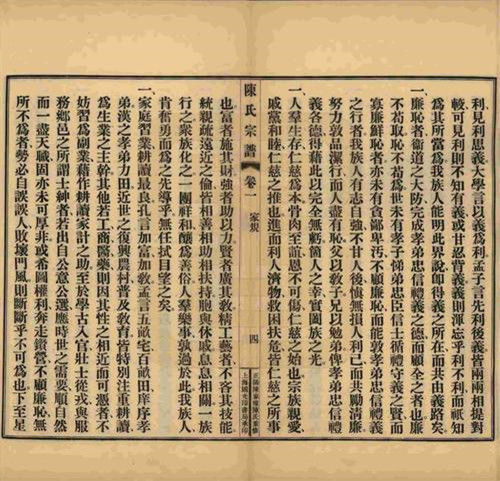 利見利思義大學言以義爲利孟子言先利後義皆兩兩相提對
較可見利則不知有義或甘忍背義義則渾忘乎利不利而祇知
爲其所當爲我族人能明此界說卽得義之所在而共由義路矣
一、廉恥者衞道之大防完成孝弟忠信禮義之德而顧全之者也廉
不苟取恥不苟爲世未有孝子悌弟忠臣信士循禮守義之賢而
寡廉鮮恥者亦未有貪鄙卑污不顧廉恥而能敦孝弟忠信禮義
之行者我族人有志自強不甘人後愼無損人利己而共勵淸廉
努力敦品潔行而人盡有恥父以敎子兄以勉弟俾孝弟忠信禮
義各德得藉此以完全無虧箇人之幸實闔族之光
一、人羣生存仁慈爲本骨肉至誼恩不可傷仁慈之始也宗族親愛
戚黨和睦仁慈之推也進而利人濟物救困扶危皆仁慈之所事
陳氏宗譜 卷一 家規 四
正陽陳家樓陳正業修
上海國光印書局承印
也富者施其財強者助以力賢者廣其敎精工藝者不吝其技能
統親疏遠近之倫皆相善相助相扶持胞與休戚息息相關一族
行之衆族化之一團祥和釀爲善俗人羣樂事孰過於此我族人
肯奮勇而爲之先導乎無任拭目望之矣
一、家庭習業耕讀最良孔言加富加敎孟言五畝宅百畝田庠序孝
弟漢之孝弟力田近世之復興農村普及敎育皆特別注重耕讀
爲生業之主幹其他若工商醫藥則因其性之相近而可憑者不
妨習爲副業藉作耕讀家計之助至於學古入官壯士從戎與服
務鄕邑之所謂士紳者若出自公意公選應時世之需要順自然
而一盡天職固亦未可厚非或希圖權利奔走鑽營不顧廉恥無
所不爲者勢必自誤誤人敗壞門風則斷斷乎不可爲也下至星